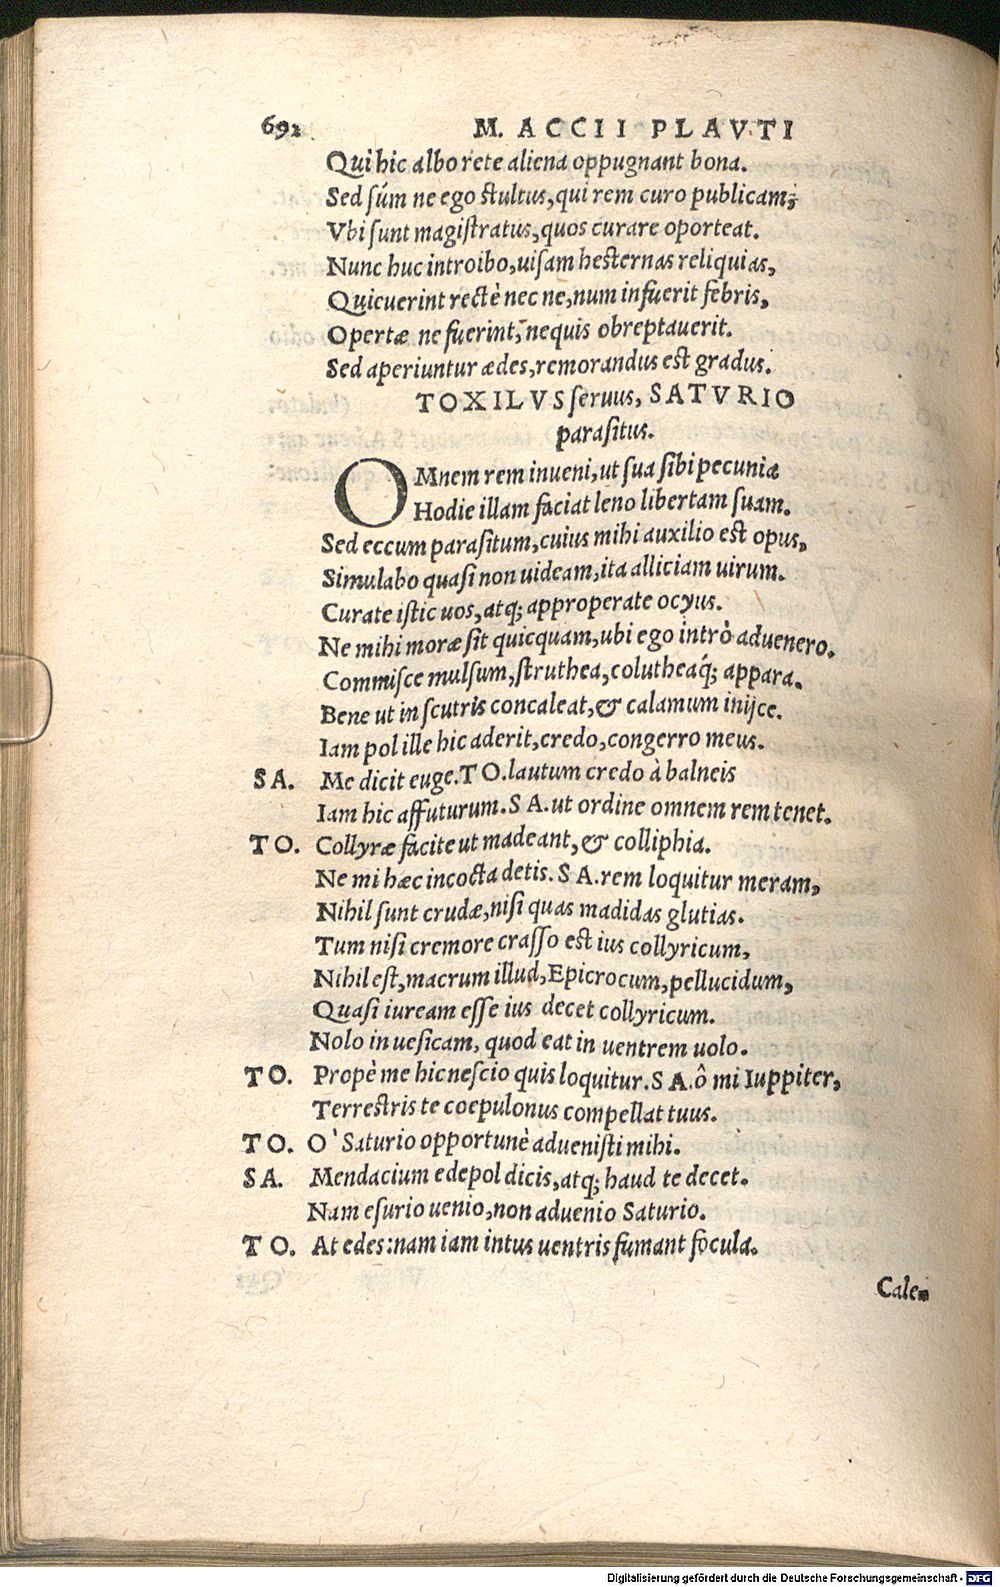 692 M. ACCII PLAVTI
Qui hic albo rete aliena oppugnant bona.
Sed súm ne ego stultus, qui rem curo publicam;
Vbi sunt magistratus, quos curare oporteat.
Nunc huc introibo, uisam hesternas reliquias,
Quieuerint rectè nec ne, num infuerit febris,
Opertæ ne fuerint, nequis obreptauerit.
Sed aperiuntur ædes, remorandus est gradus.
TOXILVS seruus, SATVRIO
parasitus.
OMnem rem inueni, ut sua sibi pecunia
Hodie illam faciat leno libertam suam.
Sed eccum parasitum, cuius mihi auxilio est opus,
Simulabo quasi non uideam, ita alliciam uirum.
Curate istic uos, atq; approperate ocyus.
Ne mihi moræ sit quicquam, ubi ego intrò aduenero.
Commisce mulsum, struthea, colutheaq́; appara.
Bene ut in scutris concaleat, & calamum inijce.
Iam pol ille hic aderit, credo, congerro meus.
SA. Me dicit euge. TO. lautum credo à balneis
Iam hic affuturum. SA. ut ordine omnem rem tenet.
TO. Collyræ facite ut madeant, & colliphia.
Ne mi hæc incocta detis. SA. rem loquitur meram,
Nihil sunt crudæ, nisi quas madidas glutias.
Tum nisi cremore crasso est ius collyricum,
Nihil est, macrum illud, Epicrocum, pellucidum,
Quasi iuream esse ius decet collyricum.
Nolo in uesicam, quod eat in uentrem uolo.
TO. Propè me hic nescio quis loquitur. SA. ô mi Iuppiter,
Terrestris te coepulonus compellat tuus.
TO. O` Saturio opportunè aduenisti mihi.
SA. Mendacium edepol dicis, atq; haud te decet.
Nam esurio uenio, non aduenio Saturio.
TO. At edes: nam iam intus uentris fumant focula.
Cale-
Digitalisierung gefördert durch die Deutsche Forschungsgemeinschaft - DFG